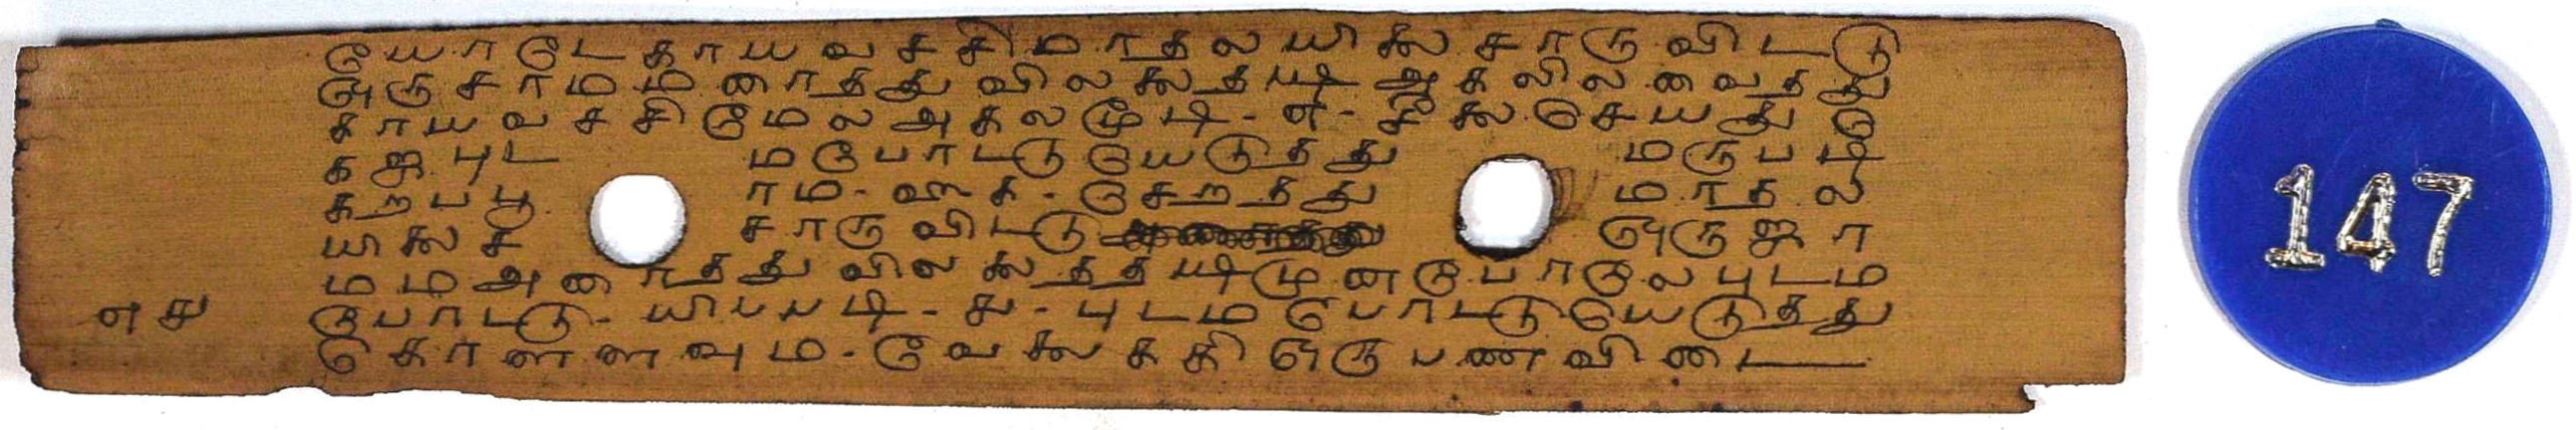 யோடே காயவசசிமாதலயிலை சாருவிடடு
ஒருசாமம மைாதது விலலைதடடி அகலிலவைதது
காயவசசி மேல அகலமூடி - ௭ - சீலை செயது
கஜபுட மபோடடு யெடுதது மருபடி
கறபபூ ரம - ௱க - சேறதது மாதல
யிலைச சாருவிடடு ஒருஜா
மமஅரைதது விலலைதடடி முனபோலபுடம
௭௪ போடடு - யிபபடி - ௪ - புடமபோடடுயெடுதது
கொளளவும - வேலைககி ஒருபணவிடை
147